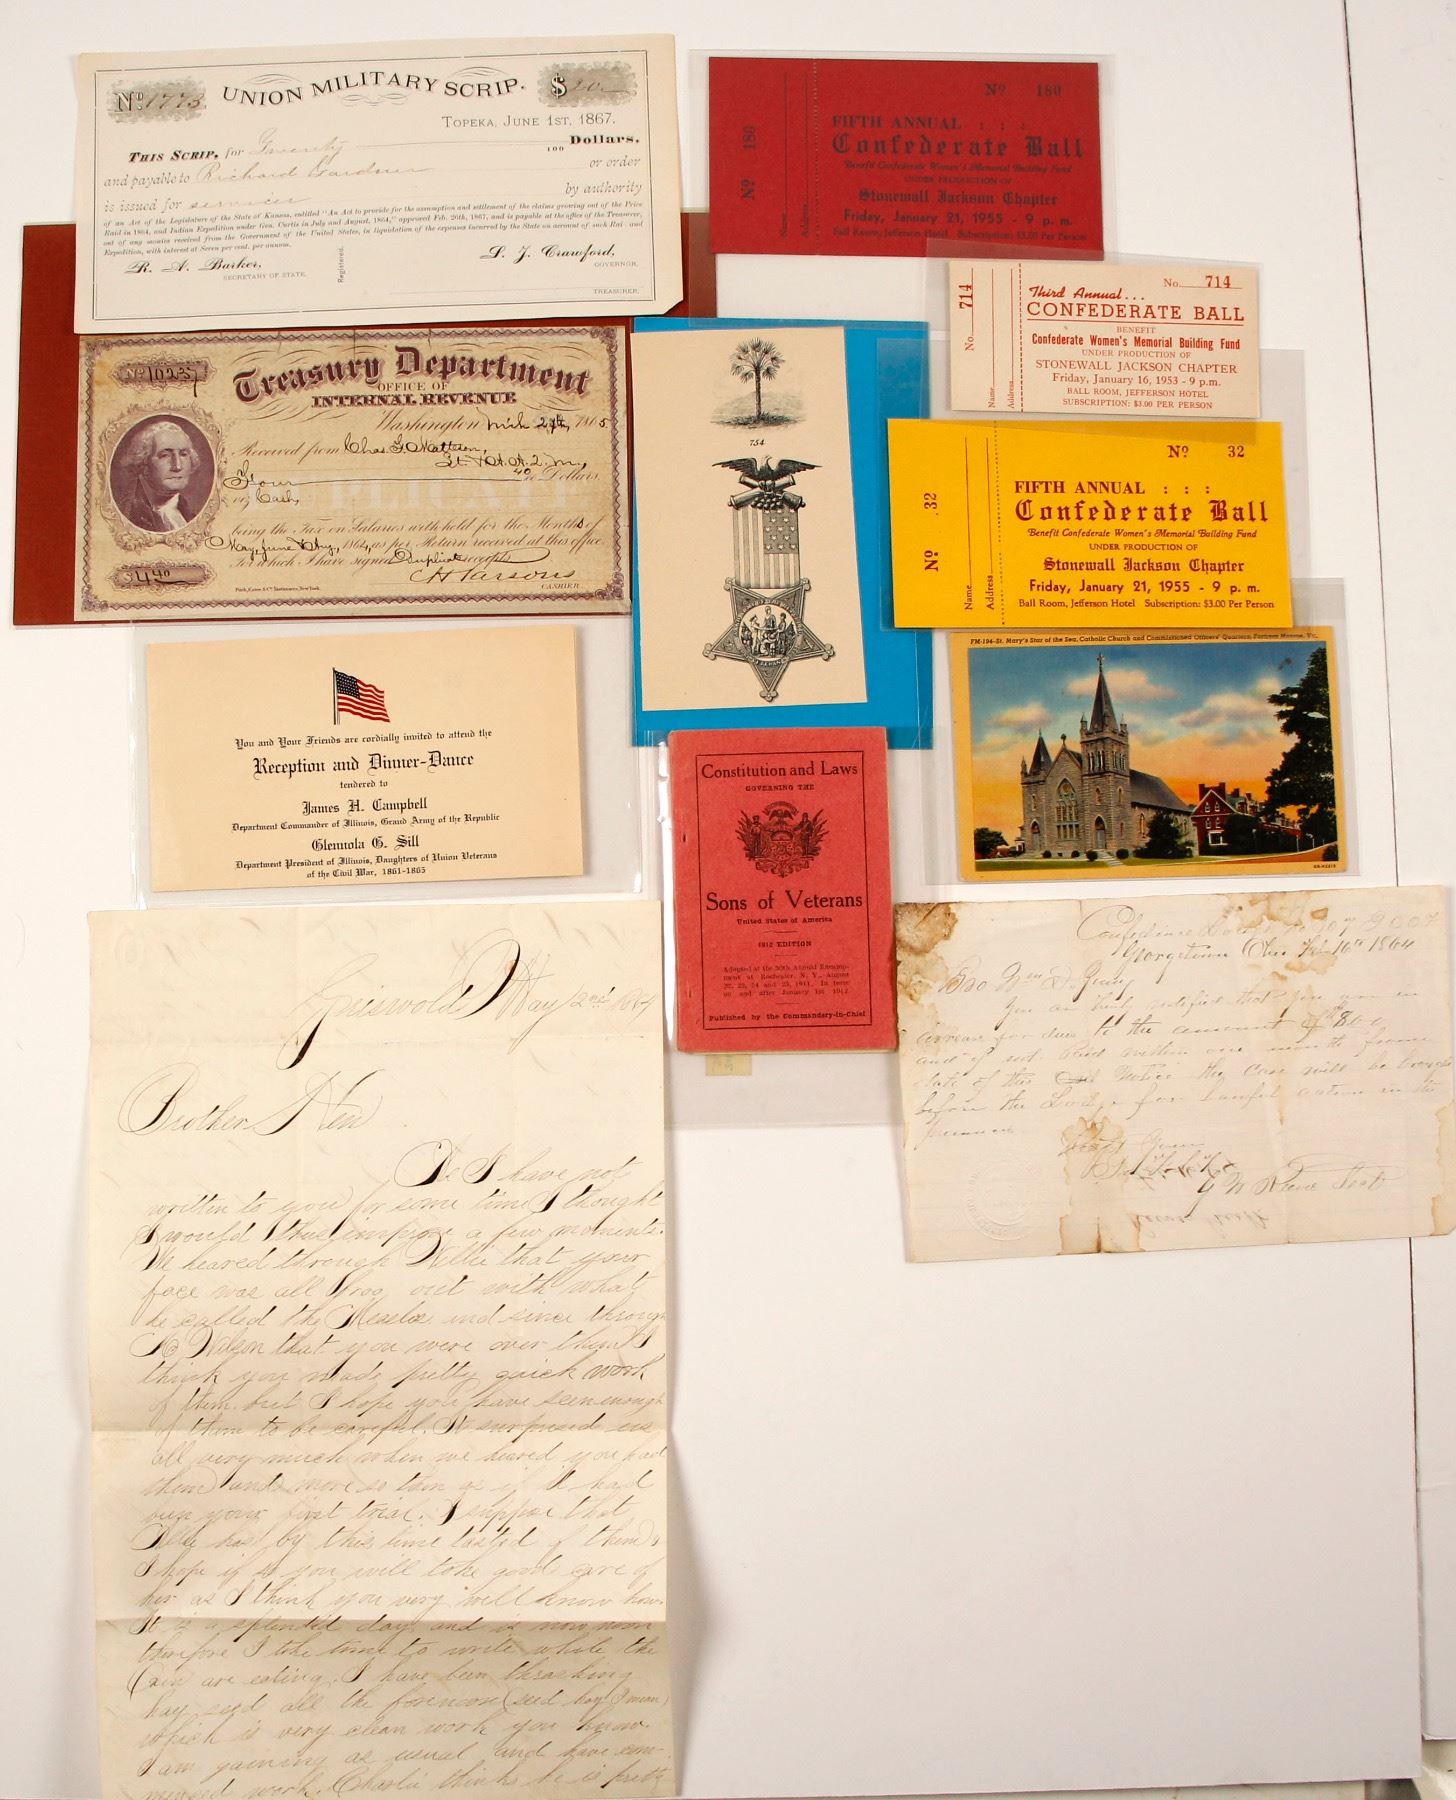 No. 1773
UNION MILITARY SCRIP.
$20
TOPEKA, JUNE 1ST, 1867.
THIS SCRIP, for Twenty 100 Dollars,
and payable to Richard Gardner or order
is issued for services by authority
of an Act of the Legislature of the State of Kansas, entitled "An Act to provide for the assumption and settlement of the claims growing out of the Price
Raid in 1864, and Indian Expedition under Gen. Curtis in July and August, 1864," approved Feb. 26th, 1867, and is payable at the office of the Treasurer,
out of any monies received from the Government of the United States, in liquidation of the expenses incurred by the State on account of such Raid and
Expedition, with interest at Seven per cent. per annum.
R. A. Barker,
SECRETARY OF STATE.
Registered.
S. J. Crawford,
GOVERNOR.
TREASURER.
No 180
No 180
Name
Address
FIFTH ANNUAL : : :
Confederate Ball
Benefit Confederate Women's Memorial Building Fund
UNDER PRODUCTION OF
Stonewall Jackson Chapter
Friday, January 21, 1955 - 9 p. m.
Ball Room, Jefferson Hotel Subscription: $3.00 Per Person
No. 714
Name
Address
No. 714
Third Annual...
CONFEDERATE BALL
BENEFIT
Confederate Women's Memorial Building Fund
UNDER PRODUCTION OF
STONEWALL JACKSON CHAPTER
Friday, January 16, 1953 - 9 p.m.
BALL ROOM, JEFFERSON HOTEL
SUBSCRIPTION: $3.00 PER PERSON
Treasury Department
OFFICE OF
INTERNAL REVENUE
Washington Mch 27th, 1865
Received from Chas. G. Matteson,
Four 40/100 Dollars,
viz Cash,
being the Tax on Salaries withheld for the Months of
May, June & Aug, 1864, as per Return received at this office
For which I have signed Duplicate receipts
C H Parsons
CASHIER.
$4.40
754
No 32
Name
Address
No 32
FIFTH ANNUAL : : :
Confederate Ball
Benefit Confederate Women's Memorial Building Fund
UNDER PRODUCTION OF
Stonewall Jackson Chapter
Friday, January 21, 1955 - 9 p. m.
Ball Room, Jefferson Hotel Subscription: $3.00 Per Person
FM-194-St. Mary's Star of the Sea, Catholic Church and Commissioned Officers' Quarters, Fortress Monroe, Va.
You and Your Friends are cordially invited to attend the
Reception and Dinner-Dance
tendered to
James H. Campbell
Department Commander of Illinois, Grand Army of the Republic
Glennola G. Sill
Department President of Illinois, Daughters of Union Veterans
of the Civil War, 1861-1865
Constitution and Laws
GOVERNING THE
Sons of Veterans
United States of America
1912 EDITION
Adopted at the 30th Annual Encamp-
ment at Rochester, N. Y., August
22, 23, 24 and 25, 1911. In force
on and after January 1st 1912.
Published by the Commandery-in-Chief
Georgetown Ohio Feb 16th 1864
Bro Wm D. Young
You are hereby notified that you are in
arrears for dues to the amount of
and if not Paid within one month from
date of this Notice the case will be brought
before the Lodge for Lawful action in the
Griswold May 2nd 1864
Brother Hen
As I have not
written to you for some time I thought
I would thus improve a few moments.
We heared through Nellie that your
face was all broo out with what
he called the Measles and since through
Wilson that you were over them I
think you made pretty quick work
of them but I hope you have seen enough
of them to be careful. It surprised us
all very much when we heared you had
them and more so than as if it had
been your first trial. I suppose that
Nellie has by this time tasted of them &
I hope if so you will take good care of
her as I think you very well know how.
It is a splendid day and is now noon
therefore I take time to write while the
are eating. I have been thrashing
hay seed all the forenoon (seed hay I mean)
which is very clean work you know.
I am gaining as usual and have com-
menced work. Charlie thinks he is pretty